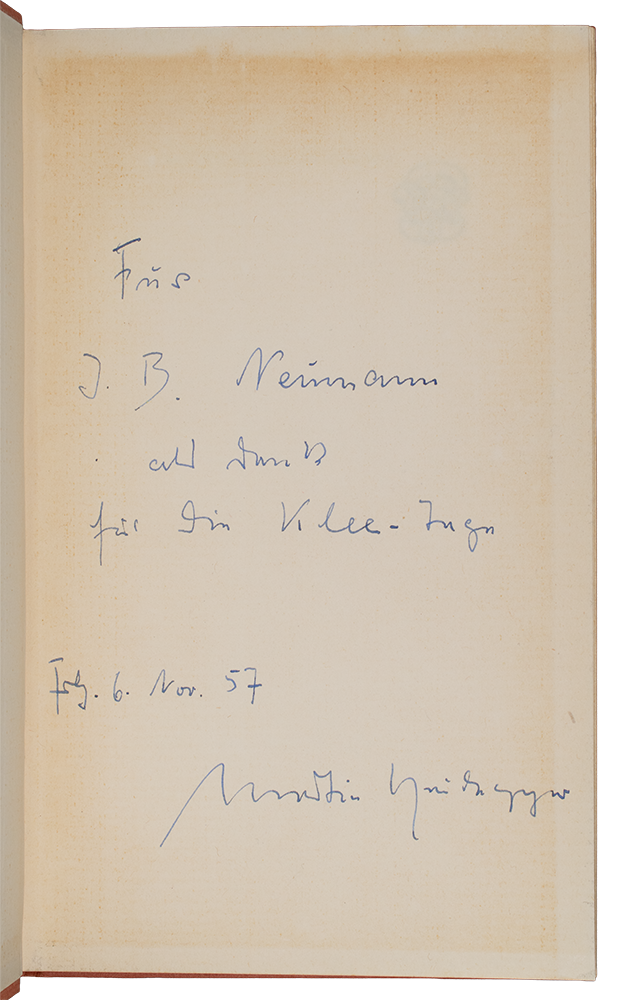 Für
J. B. Neumann
als Dank
für die Klee-Tage
Frbg. 6. Nov. 57
Martin Heidegger